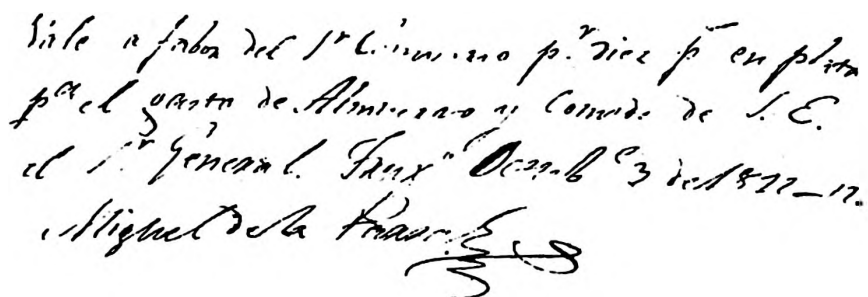 Vale a fabor del Sr Comisario pr diez ps en plata
pa el gasto de Almuerzo y Comida de S. E.
el Sr General. Truxo 3 de
Miguel de la